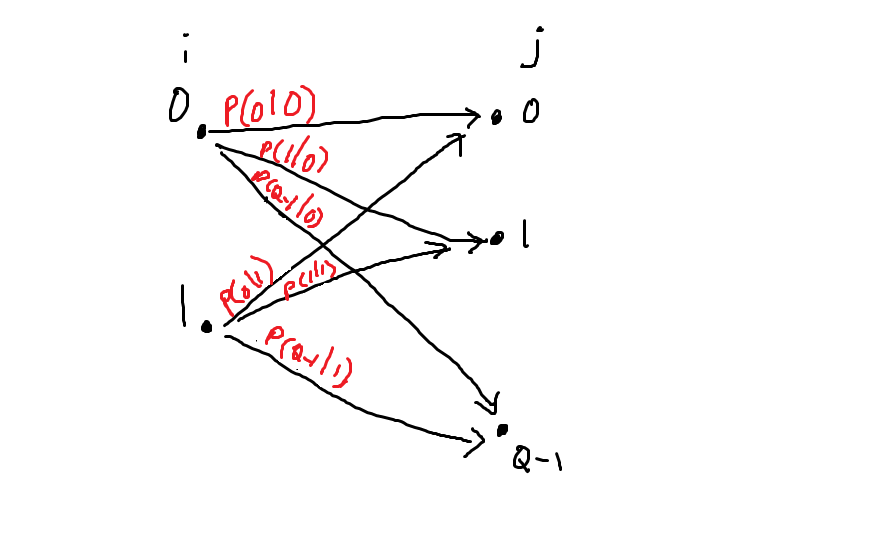 i j
0 P(0|0) 0
P(1|0)
P(Q-1|0)
1
P(0|1) P(1|1)
1
P(Q-1|1)
Q-1